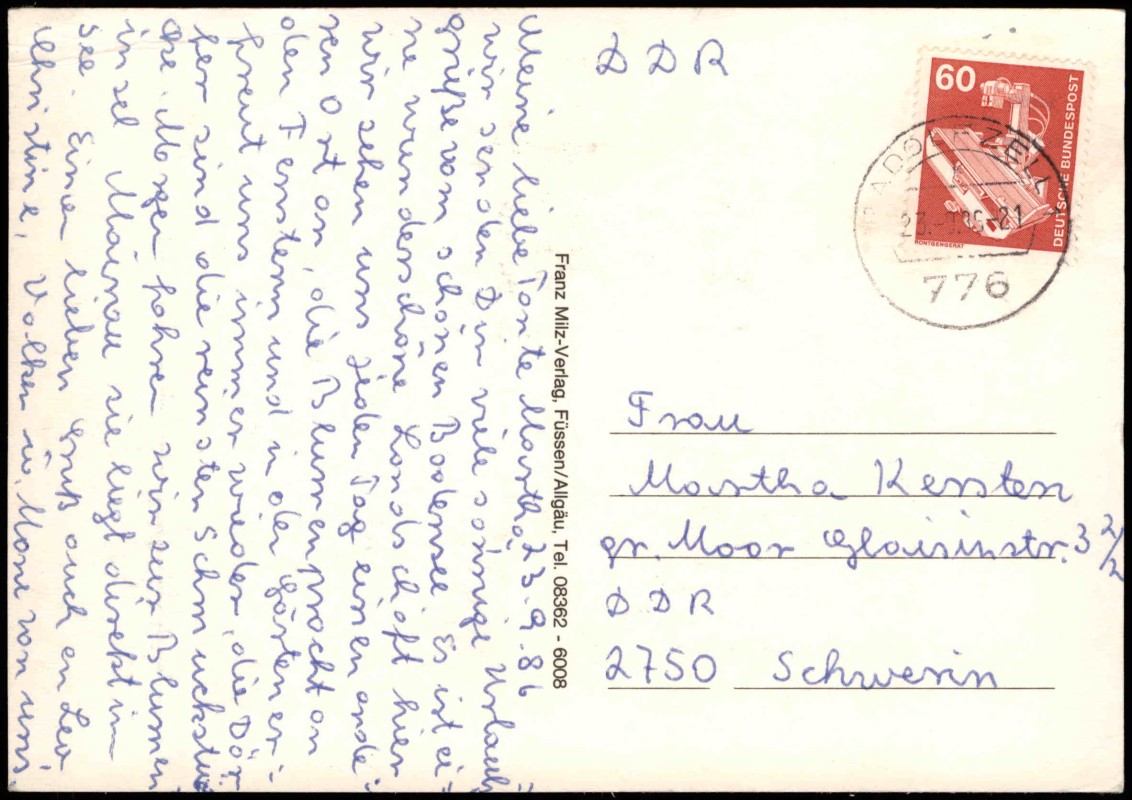 Meine liebe Tante Martha, 23.9.86
wir senden Dir viele sonnige Urlaubs-
grüße vom schönen Bodensee. Es ist ei-
ne wunderschöne Landschaft hier
wir sehen uns jeden Tag einen ande-
ren Ort an, die Blumenpracht an
den Fenstern und in den Gärten er-
freut uns immer wieder, die Dör-
fer sind die reinsten Schmuckstücke
Morgen fahren wir zur Blumen-
insel Mainau sie liegt direkt im
See. Einen lieben Gruß auch an
Christine, Volker u. von uns
Franz Milz-Verlag, Füssen/Allgäu, Tel. 08362 - 6008
DDR
60
DEUTSCHE BUNDESPOST
RÖNTGENGERÄT
RADOLFZELL 1
776
Frau
Martha Kersten
gr. Moor 3 2/2
DDR
2750 Schwerin